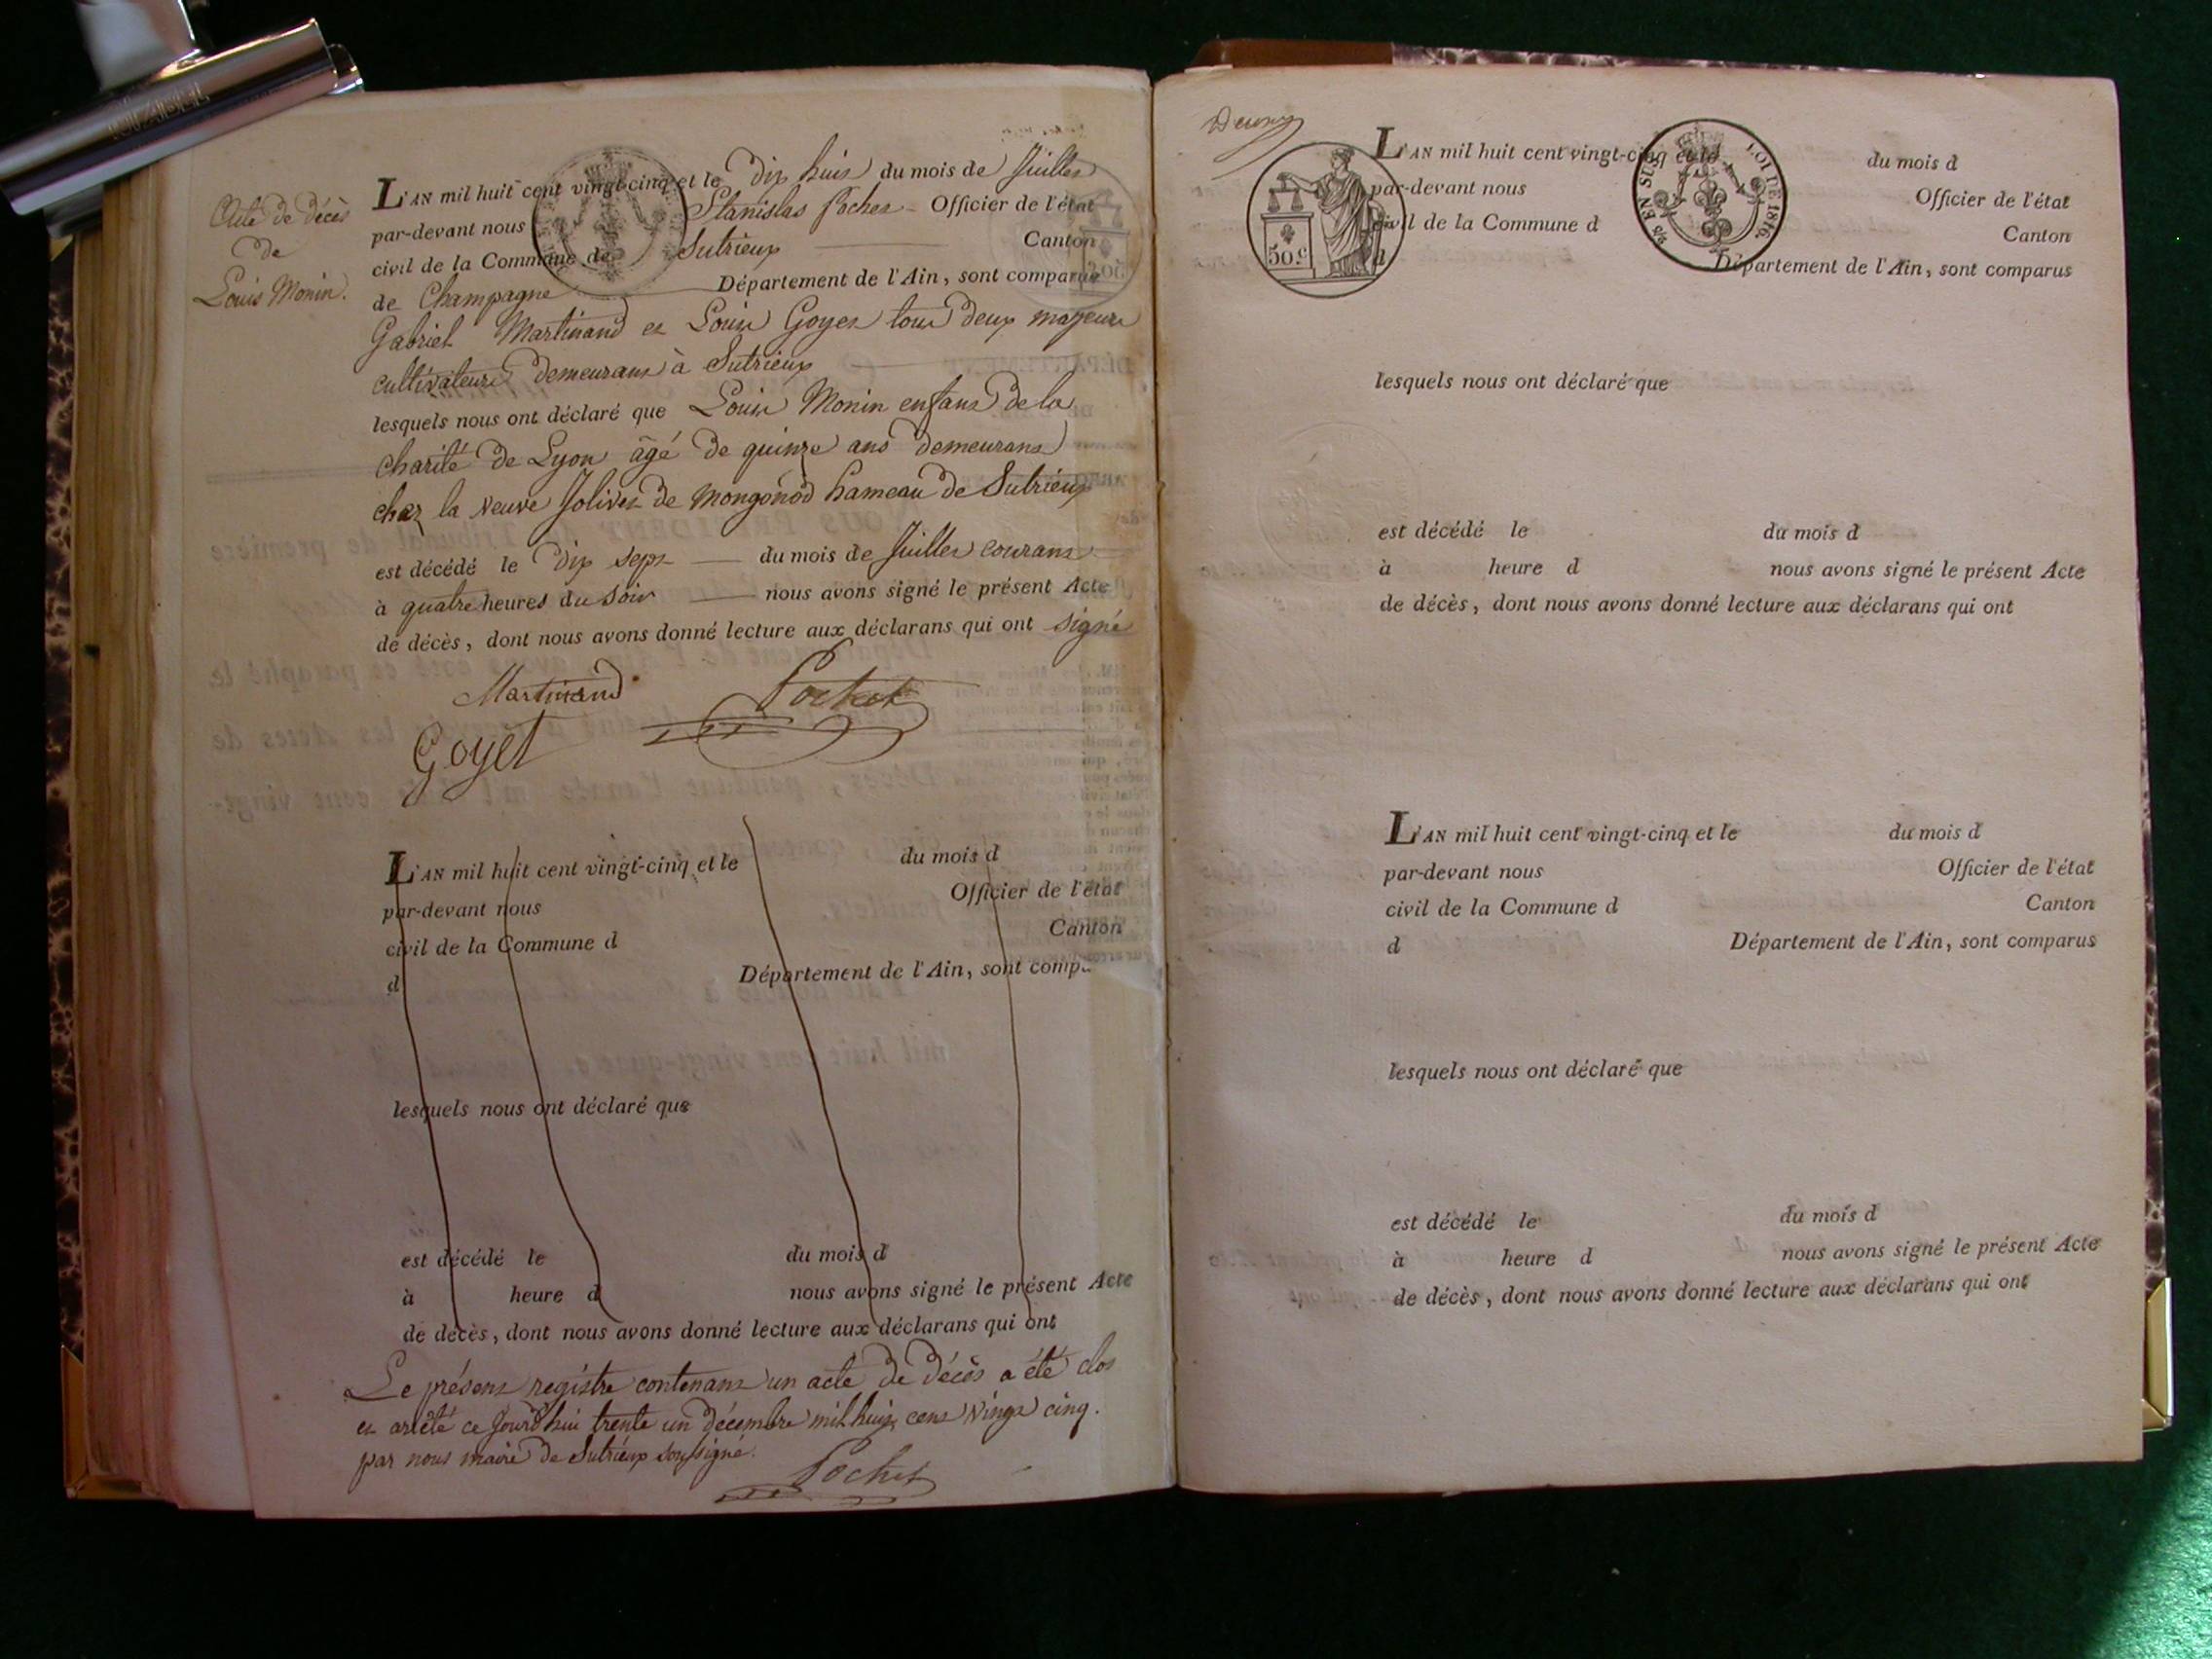 Acte de décès
de
Louis Monin.
L'AN mil huit cent vingt-cinq et le Dix huit du mois de Juillet
par-devant nous Stanislas Pochet Officier de l'état
civil de la Commune de Sutrieux Canton
de Champagne Département de l'Ain, sont comparus
Gabriel Martinand et Louis Goyet tous deux majeurs
cultivateurs demeurant à Sutrieux
lesquels nous ont déclaré que Louis Monin enfant de la
charité de Lyon âgé de quinze ans demeurant
chez la veuve Jolivet de Mongonod hameau de Sutrieux
est décédé le dix sept du mois de Juillet courant
à quatre heures du soir nous avons signé le présent Acte
de décès, dont nous avons donné lecture aux déclarans qui ont signé
Martinand Pochet
Goyet
L'AN mil huit cent vingt-cinq et le du mois d
par-devant nous Officier de l'état
civil de la Commune d Canton
d Département de l'Ain, sont comp
lesquels nous ont déclaré que
est décédé le du mois d
à heure d nous avons signé le présent Acte
de décès, dont nous avons donné lecture aux déclarans qui ont
Le présent registre contenant un acte de décès a été clos
et arrêté ce Jourd'hui trente un décembre mil huit cent vingt cinq.
par nous maire de Sutrieux soussigné.
Pochet
L'AN mil huit cent vingt-cinq et le du mois d
par-devant nous Officier de l'état
civil de la Commune d Canton
d Département de l'Ain, sont comparus
50 c
EN SUS
LOI DE 1816
lesquels nous ont déclaré que
est décédé le du mois d
à heure d nous avons signé le présent Acte
de décès, dont nous avons donné lecture aux déclarans qui ont
L'AN mil huit cent vingt-cinq et le du mois d
par-devant nous Officier de l'état
civil de la Commune d Canton
d Département de l'Ain, sont comparus
lesquels nous ont déclaré que
est décédé le du mois d
à heure d nous avons signé le présent Acte
de décès, dont nous avons donné lecture aux déclarans qui ont